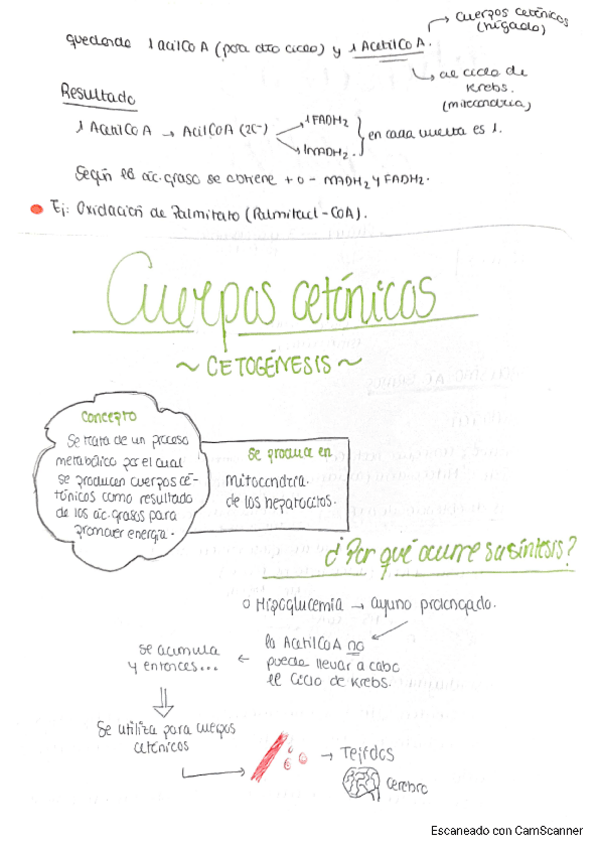 Cuerpos cetónicos
(hígado)
quedando 1 acilCoA (para otro ciclo) y 1 AcetilCoA.
al ciclo de
Krebs.
(mitocondria)
Resultado
1 AcetilCoA → AcilCoA (2C-)
1 FADH2
1 NADH2.
en cada vuelta es 1.
Según el ác. graso se obtiene + o - NADH2 y FADH2.
Ej: Oxidación de Palmitato (Palmitoil-CoA).
Cuerpos cetónicos
~ CETOGÉNESIS ~
Concepto
Se trata de un proceso
metabólico por el cual
se producen cuerpos ce-
tónicos como resultado
de los ác. grasos para
promover energía.
Se produce en
mitocondria
de los hepatocitos.
¿Por qué ocurre su síntesis?
o Hipoglucemia → ayuno prolongado.
la AcetilCoA no
puede llevar a cabo
el Ciclo de Krebs.
←
se acumula
y entonces...
Se utiliza para cuerpos
cetónicos
→ Tejidos
cerebro
Escaneado con CamScanner